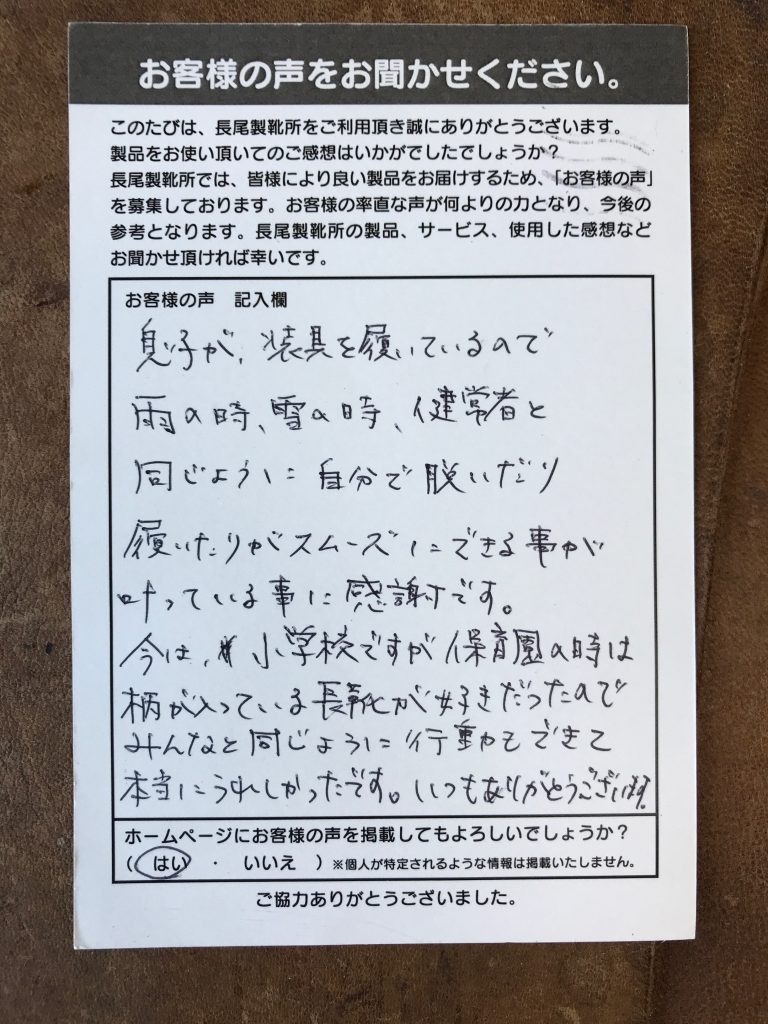 お客様の声をお聞かせください。
このたびは、長尾製靴所をご利用頂き誠にありがとうございます。
製品をお使い頂いてのご感想はいかがでしたでしょうか？
長尾製靴所では、皆様により良い製品をお届けするため、「お客様の声」
を募集しております。お客様の率直な声が何よりの力となり、今後の
参考となります。長尾製靴所の製品、サービス、使用した感想など
お聞かせ頂ければ幸いです。
お客様の声　記入欄
息子が、装具を履いているので
雨の時、雪の時、健常者と
同じように自分で脱いだり
履いたりがスムーズにできる事が
叶っている事に感謝です。
今は、小学校ですが保育園の時は
柄が入っている長靴が好きだったので
みんなと同じように行動もできて
本当にうれしかったです。いつもありがとうございます。
ホームページにお客様の声を掲載してもよろしいでしょうか？
（　はい　・　いいえ　）※個人が特定されるような情報は掲載いたしません。
ご協力ありがとうございました。